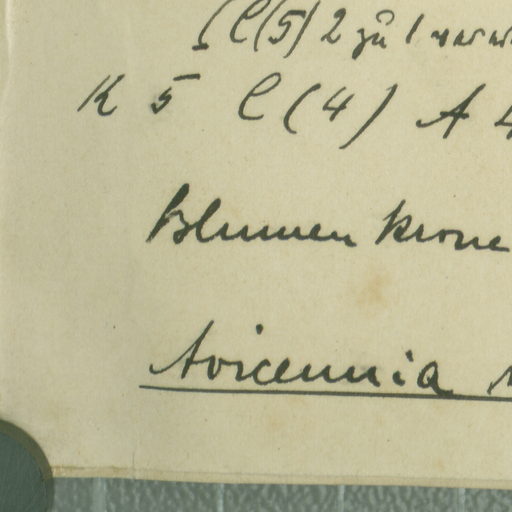 [C(5) 2 zu 1
K 5 C (4) A 4
Blumenkrone
Avicennia